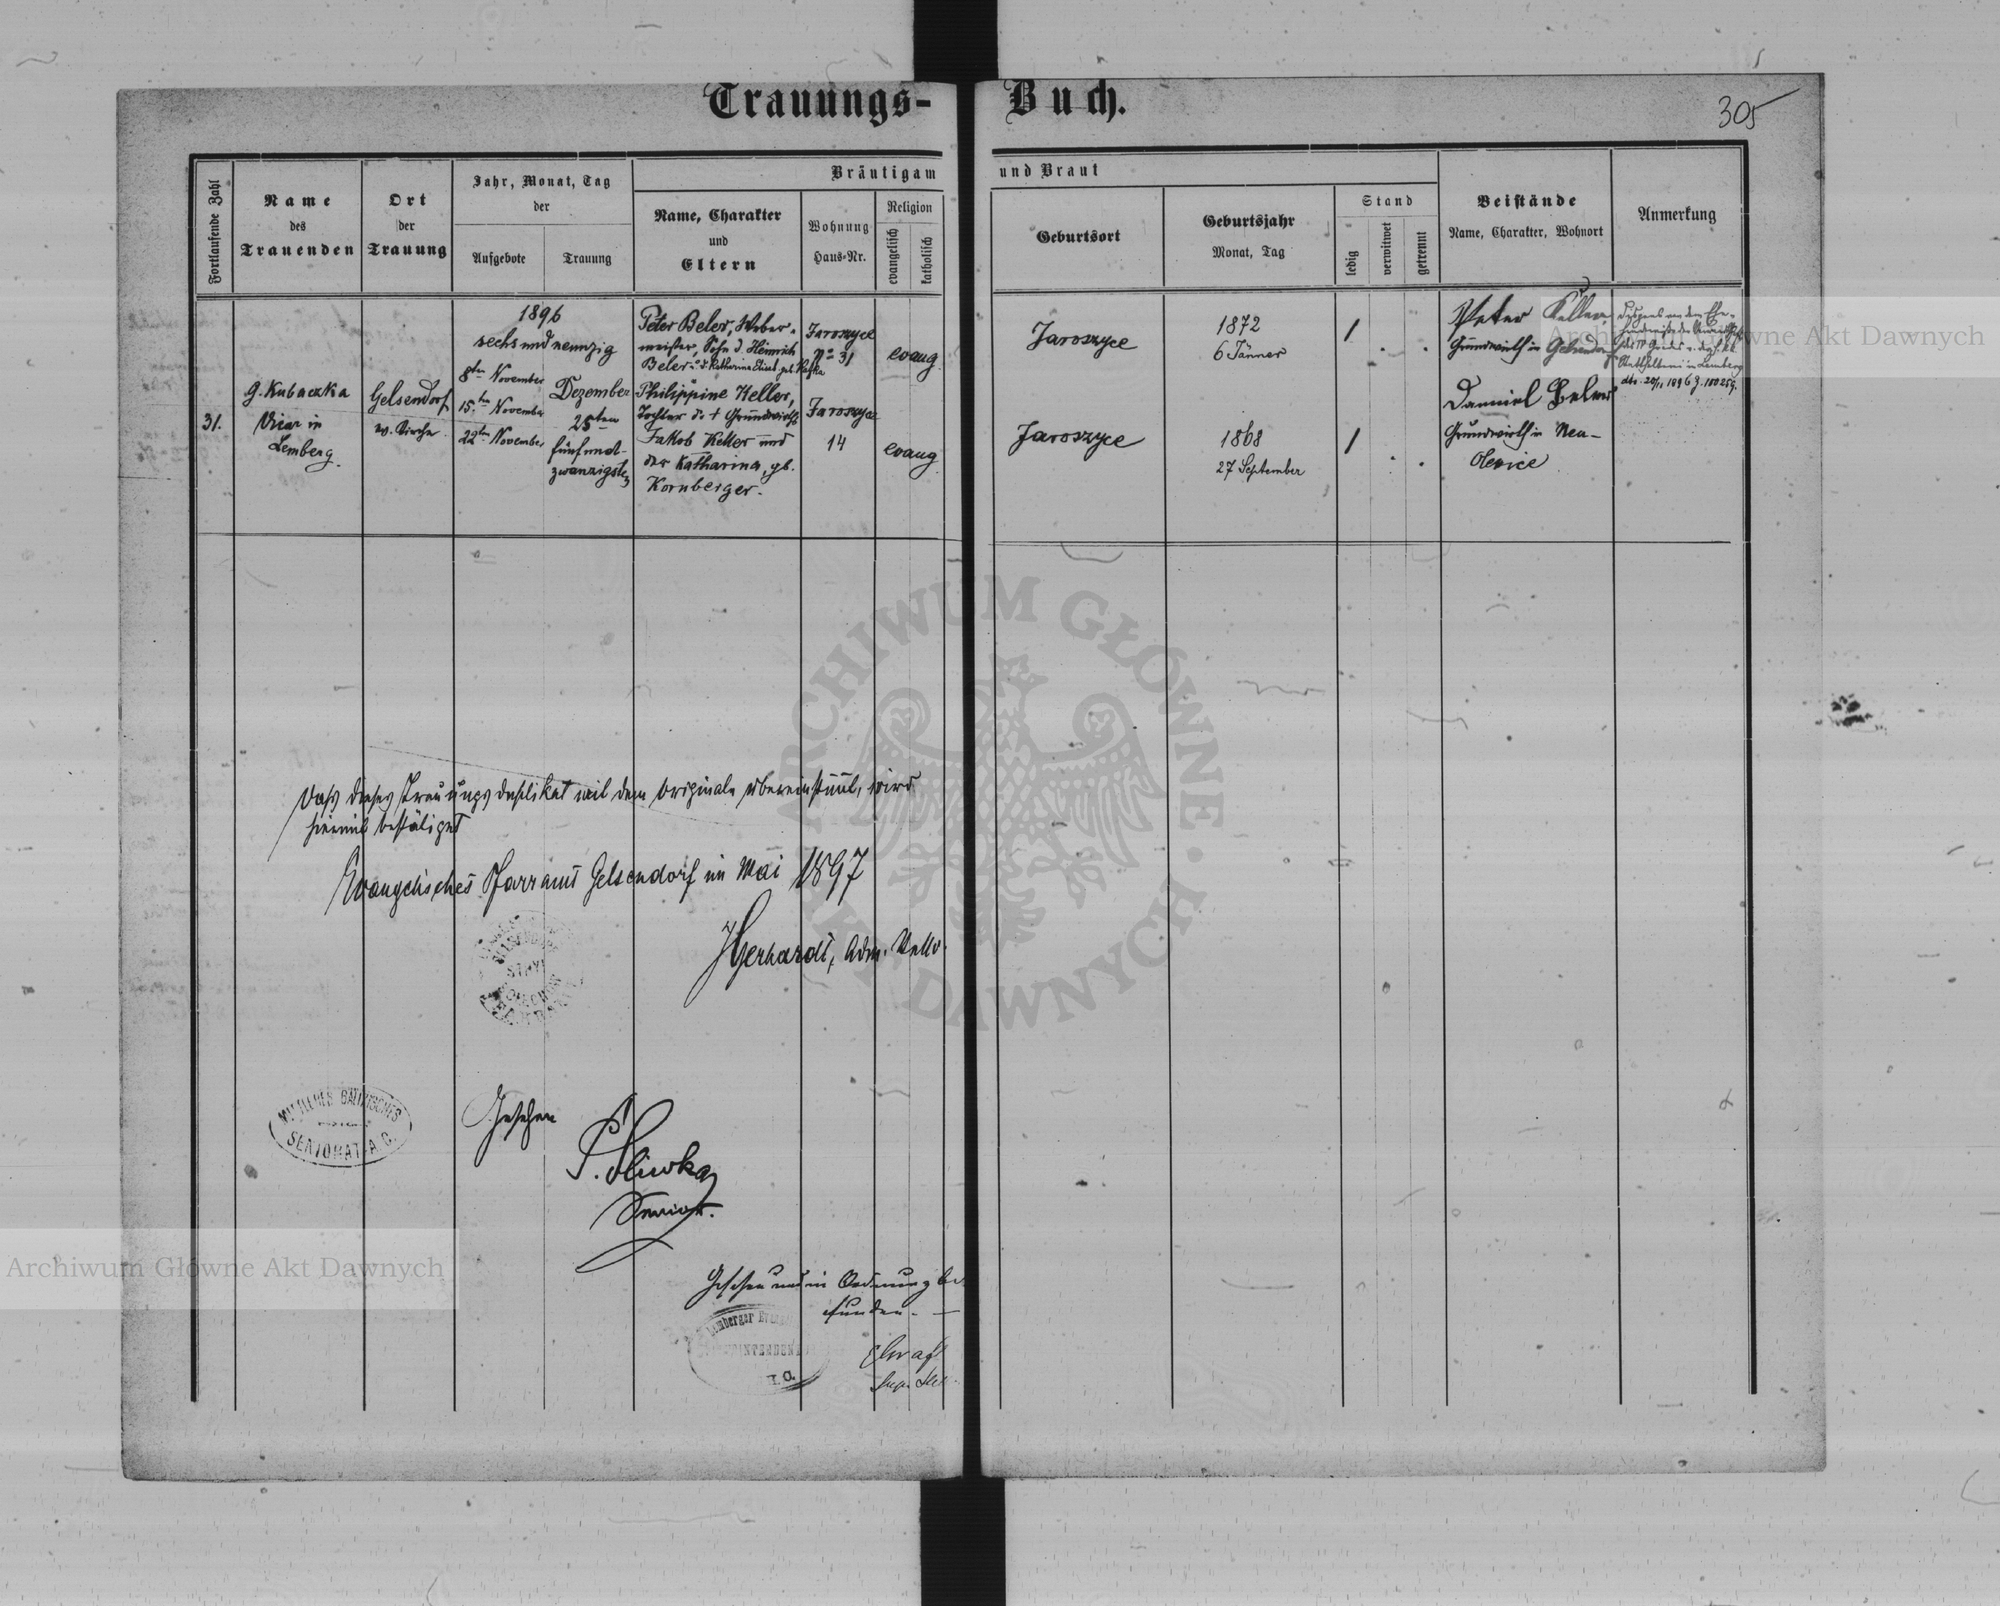 Trauungs-Buch.
305
Fortlaufende Zahl
Name
des
Trauenden
Ort
der
Trauung
Jahr, Monat, Tag
der
Aufgebote
Trauung
Bräutigam und Braut
Name, Charakter
und
Eltern
Wohnung
Haus-Nr.
Religion
evangelisch
katholisch
Geburtsort
Geburtsjahr
Monat, Tag
Stand
ledig
verwitwet
getrennt
Beistände
Name, Charakter, Wohnort
Anmerkung
31.
G. Kubaczka
Vicar in
Lemberg.
Gelsendorf
ev. Kirche
1896
sechs und neunzig
8ten November
15.ten November
22ten November
Dezember
25ten
fünfund-
zwanzigsten
Peter Beler, Weber-
meister, Sohn d. Heinrich
Beler u. d. Katharina Elisab. geb.
Philippine Keller,
Tochter d. + Grundwirths
Jakob Keller und
der Katharina, gb.
Kornberger.
Jaroszyce
No 31
Jaroszyce
14
evang.
evang.
Jaroszyce
Jaroszyce
1872
6 Jänner
1868
27 September
/
/
Peter Keller
Grundwirth in Gelsendorf
Daniel Beler
Grundwirth in Neu-
Olexice
Statthalterei in Lemberg
dto. 20/11 1896 Z.
Dass dieses Trauungsduplikat mit dem Originale übereinstimmt, wird
hiermit bestätiget
Evangelisches Pfarramt Gelsendorf im Mai 1897
JGerhardt, Adm.
STRYJ
MITTLERES GALIZISCHES
SENIORAT A.C.
Gesehen
P. Sliwka
Senior.
Gesehen und in Ordnung be-
funden. —
Lemberger
ARCHIWUM GŁÓWNE AKT DAWNYCH
Archiwum Główne Akt Dawnych
Archiwum Główne Akt Dawnych